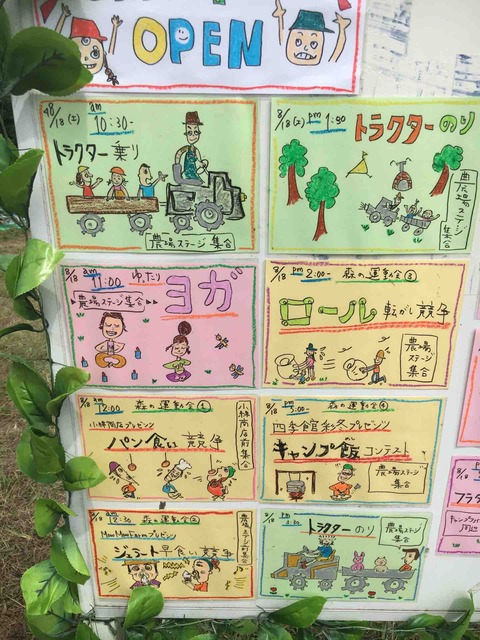 OPEN
8/18(土) am 10:30-
トラクター乗り
農場ステージ集合
8/18(土) pm 1:30
トラクターのり
農場ステージ集合
8/18 am 11:00 ゆったり
ヨガ
農場ステージ集合
8/18 pm 2:00- 森の運動会③
ロール転がし競争
農場ステージ集合
8/18 am 12:00 森の運動会①
小林商店プレゼンツ
パン食い競争
小林商店前集合
8/18 pm 3:00- 森の運動会④
四季館彩冬プレゼンツ
キャンプ飯コンテスト
農場ステージ集合
8/18 12:30 森の運動会②
プレゼンツ
ジェラート早食い競争
8/18 pm 3:30
トラクターのり
農場ステージ集合
フラダ